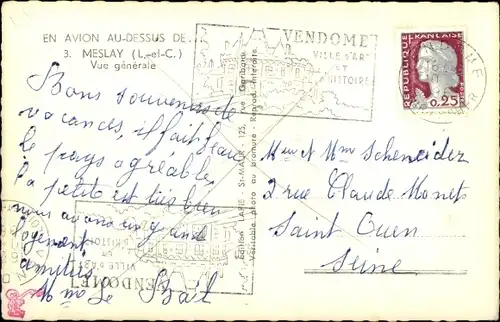 EN AVION AU-DESSUS DE...
3. MESLAY (L.-et-C.)
Vue générale
VENDOME
VILLE D'ART
ET
D'HISTOIRE
REPUBLIQUE FRANÇAISE
0,25
Bons souvenirs de
vacances, il fait beau
le pays agréable,
la petit est très bien
nous avons un grand
logement
amitiés
Mme Le
Edition LAPIE St-MAUR - 125, rue Garibaldi
Véritable photo au bromure - Reprod. interdite
Mr et Mme Scheneidez
2 rue Claude Monets
Saint Ouen
Seine
VENDOME
VILLE D'ART
ET
D'HISTOIRE